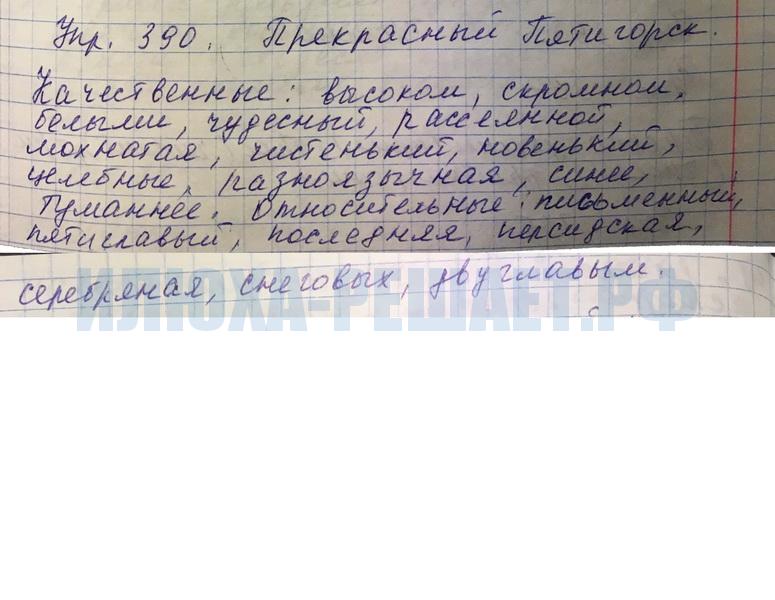 Упр. 390. Прекрасный Пятигорск.
Качественные: высоком, скромном,
белыми, чудесный, рассеянной,
мохнатая, чистенький, новенький,
целебные, разноязычная, синее,
туманнее. Относительные: письменный,
пятиглавый, последняя, персидская,
серебряная, снеговых, двуглавым.
ИЛЮХА-РЕШАЕТ.РФ